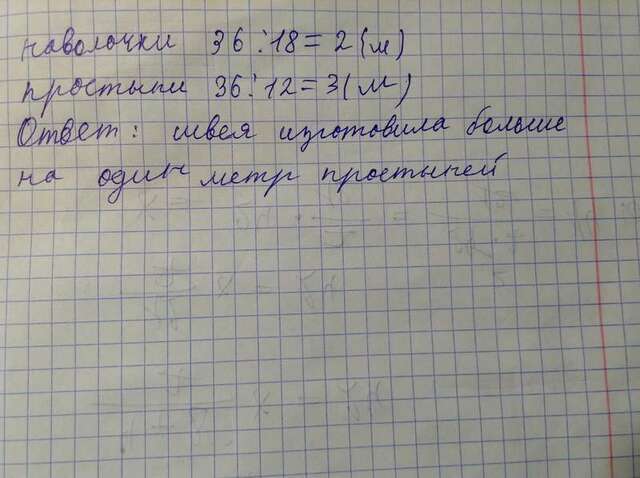 наволочки 36:18=2(м)
простыни 36:12=3(м)
Ответ: швея изготовила больше
на один метр простыней